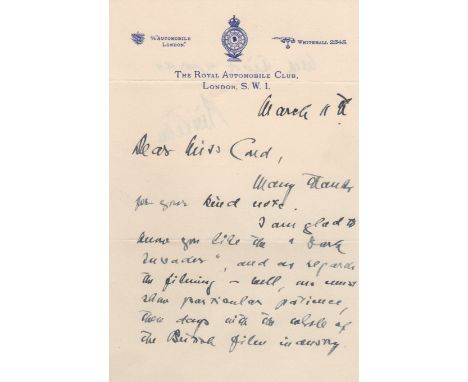 "AUTOMOBILE
LONDON."
WHITEHALL 2345.
THE ROYAL AUTOMOBILE CLUB,
LONDON, S.W.1.
March 11th
Dear Miss Cord,
Many thanks
for your kind note.
I am glad to
know you like the "Dark
Invader", and as regards
the filming – well, one must
show particular patience,
these days with the whole of
the British film industry.